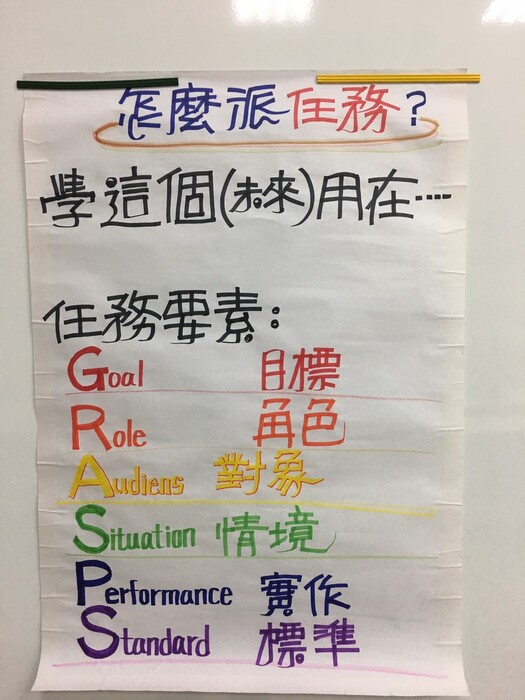 怎麼派任務?
學這個(未來)用在....
任務要素:
Goal 目標
Role 角色
Audiens 對象
Situation 情境
Performance 實作
Standard 標準